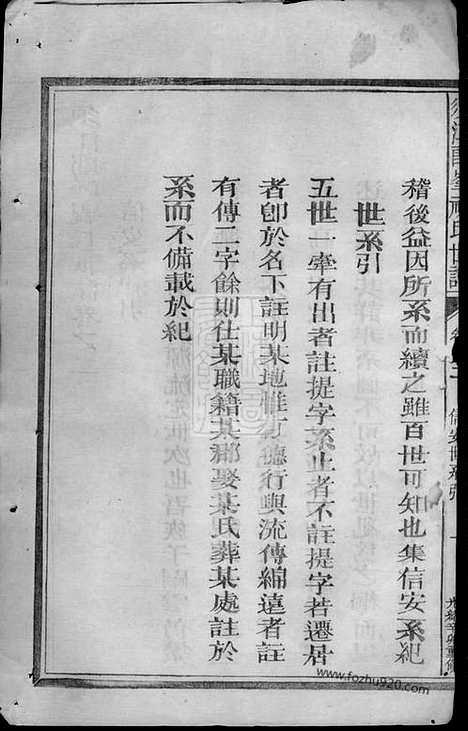 氏世譜
信安世系引
光緒辛卯重修
稽後益因所系而續之雖百世可知也集信安系紀
世系引
五世一牽有出者註提字系止者不註提字若遷居
者卽於名下註明某地惟有德行與流傳綿遠者註
有傳二字餘則仕某職籍某郡娶某氏葬某處註於
系而不備載於紀
www.fozhu920.com